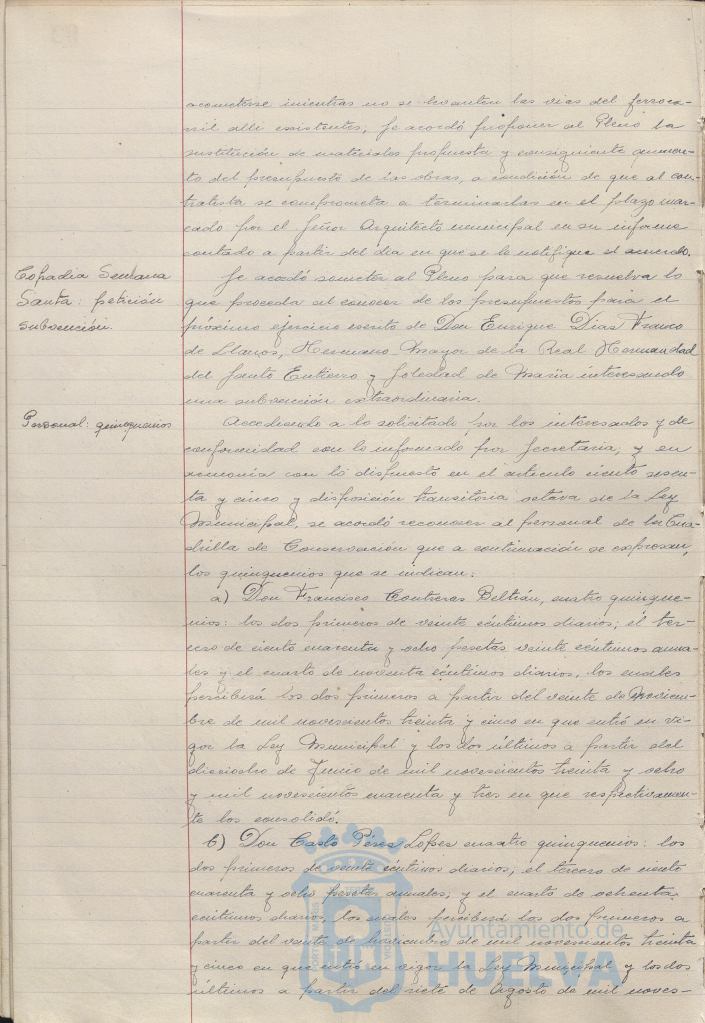 acometerse mientras no se levanten las vias del ferroca-
rril alli existentes, se acordó proponer al Pleno la
sustitución de materiales propuesta y consiguiente aumen-
to del presupuesto de las obras, a condición de que al con-
tratista se comprometa a terminarlas en el plazo mar-
cado por el Señor Arquitecto municipal en su informe
contado a partir del dia en que se le notifique el acuerdo.
Cofradia Semana
Santa: petición
subvención.
Se acordó someter al Pleno para que resuelva lo
que proceda al conocer de los presupuestos para el
próximo ejercicio escrito de Don Enrique Dias Franco
de Llanos, Hermano Mayor de la Real Hermandad
del Santo Entierro y Soledad de María interesando
una subvención extraordinaria.
Personal: quinquenios
Accediendo a lo solicitado por los interesados y de
conformidad con lo informado por Secretaria, y en
armonía con lo dispuesto en el articulo ciento sesen-
ta y cinco y disposición transitoria octava de la Ley
Municipal, se acordó reconocer al personal de la Cua-
drilla de Conservación que a continuación se expresan,
los quinquenios que se indican:
a) Don Francisco Contreras Beltrán, cuatro quinque-
nios: los dos primeros de veinte céntimos diarios; el ter-
cero de ciento cuarenta y ocho pesetas veinte céntimos anua-
les y el cuarto de noventa céntimos diarios, los cuales
percibirá los dos primeros a partir del veinte de Noviem-
bre de mil novescientos treinta y cinco en que entró en vi-
gor la Ley Municipal y los dos últimos a partir del
dieciocho de Junio de mil novescientos treinta y ocho
y mil novescientos cuarenta y tres en que respectivamen-
te los consolidó.
b) Don Casto Pérez Lopes cuatro quinquenios: los
dos primeros de veinte céntimos diarios, el tercero de ciento
cuarenta y ocho pesetas anuales, y el cuarto de ochenta
céntimos diarios, los cuales percibirá los dos primeros a
partir del veinte de noviembre de mil novescientos treinta
y cinco en que entró en vigor la Ley Municipal y los dos
últimos a partir del siete de Agosto de mil noves-
Ayuntamiento de
HUELVA